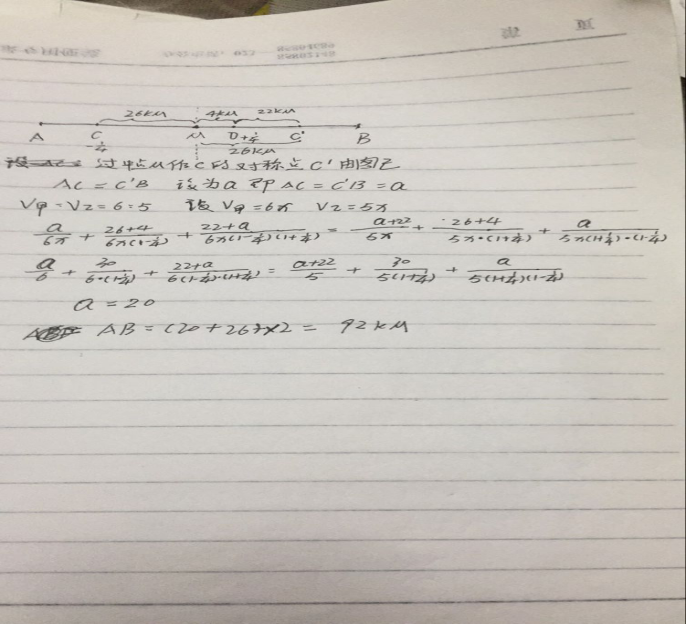 26KM 4KM 22KM
A C M D +¼ C' B
-¼ 26KM
过中点M作C的对称点C' 由图已
AC = C'B 设为a 即 AC = C'B = a
V甲:V乙 = 6:5 设 V甲=6x V乙=5x
a/6x + 26+4/6x(1-¼) + 22+a/6x(1-¼)(1+¼) = a+22/5x + 26+4/5x·(1+¼) + a/5x(1+¼)·(1-¼)
a/6 + 30/6·(1-¼) + 22+a/6(1-¼)·(1+¼) = a+22/5 + 30/5(1+¼) + a/5(1+¼)(1-¼)
a = 20
AB = (20+26)×2 = 92KM